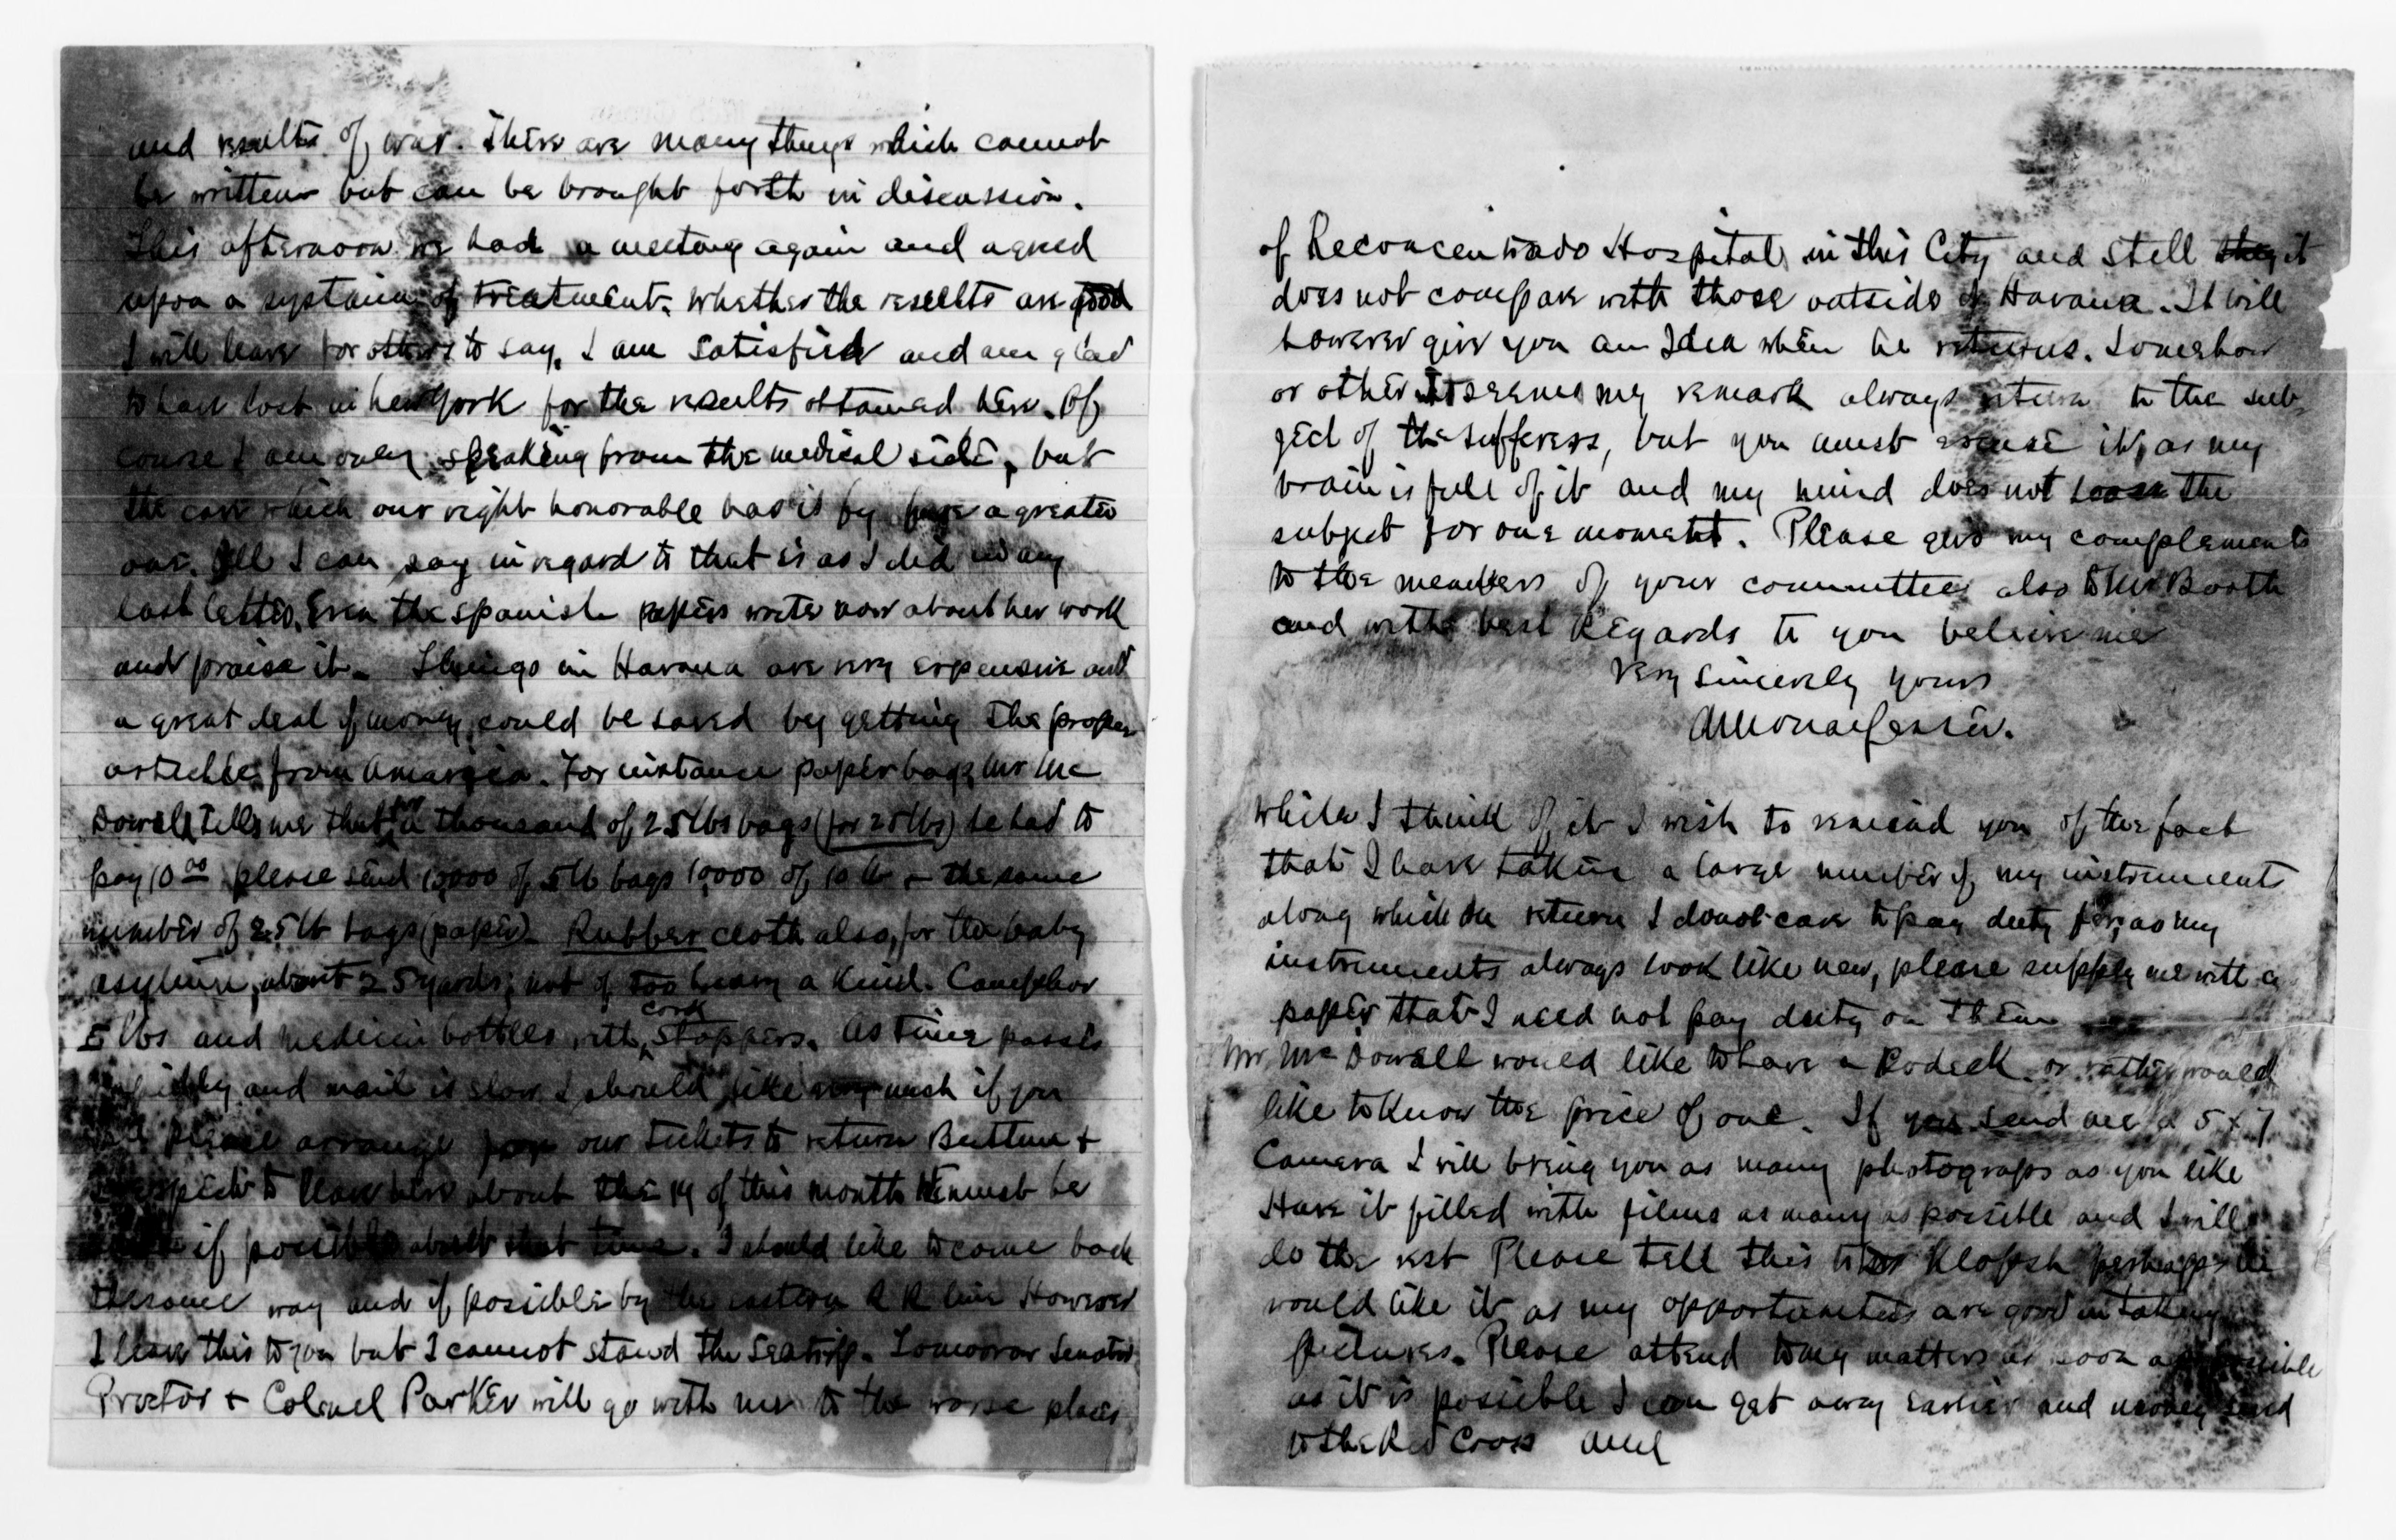 and results of war. There are many things which cannot
be written but can be brought forth in discussion.
This afternoon we had a meeting again and agreed
upon a systaim of treatment. Whether the results are good
I will leave for others to say. I am satisfied and am glad
to have lost in New York for the results obtained here. Of
course I am only speaking from the medical side, but
the care which our right honorable has is by far a greater
one. All I can say in regard to that is as I did in my
last letter. Even the spanish papers write now about her work
and praise it. Things in Havana are very expensive and
a great deal of money could be saved by getting the proper
articles from America. For instance paper bags Mr Mc
Dowell tells me that for a thousand of 25 lbs bags (for 25 lbs) he had to
pay 10 00 please send 10,000 of 5 lb bags 10,000 of 10 lb + the same
number of 25 lb bags (paper). Rubber cloth also, for the baby
asylum, about 25 yards; not of too heavy a kind. Camphor
5 lbs and medicin bottles with cork stoppers. As time passes
and mail is slow I should like very much if you
please arrange for our tickets to return Button +
to leave here about the 19 of this month We must be
if possible about that time. I should like to come back
the same way and if possible by the eastern R R line However
I leave this to you but I cannot stand the Seatrip. Tomorrow Senator
Proctor + Colonel Parker will go with me to the worse places
of Reconcentrado Hospitals in this City and still they it
does not compare with those outside of Havana. It will
however give you an Idea when he returns. Somehow
or other it seems my remark always return to the sub-
ject of the sufferers, but you must excuse it, as my
brain is full of it and my mind does not loose the
subject for one moment. Please give my complements
to the members of your committee also to Mr Booth
and with best Regards to you believe me
Very Sincerely yours
While I think of it I wish to remind you of the fact
that I have taken a large number of my instruments
along which on return I do not care to pay duty for, as my
instruments always look like new, please supply me with a
paper that I need not pay duty on them
Mr. McDowell would like to have a Kodeck or rather would
like to know the price of one. If you send me a 5 x 7
Camera I will bring you as many photograps as you like
Have it filled with films as many as possible and I will
do the rest Please tell this to Klopsh perhapps he
would like it as my opportunities are good in taking
pictures. Please attend to my matters as soon as possible
as it is possible I can get away earlier and money send
to the Red Cross